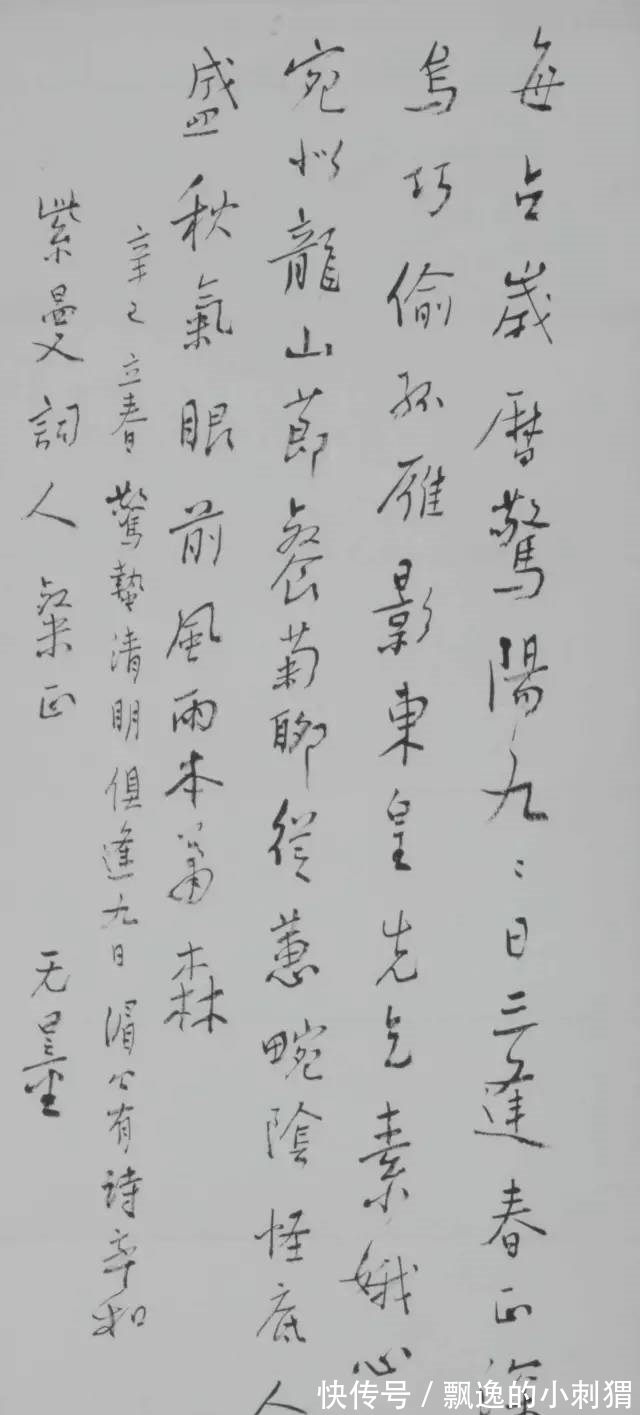 每占歲曆驚陽九ミ日三逢春正深
烏巧偷孤雁影東皇先乞素娥心
宛似龍山節餐菊聊從蕙畹陰怪底人
盛秋氣眼前風雨本蕭森
辛巳立春驚蟄清明俱逢九日湄公有詩率和
紫曼詞人粲正
无量
快传号/飘逸的小刺猬